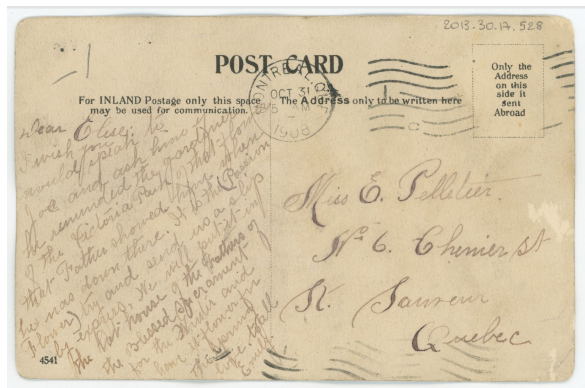 2013.30.17.528
POST CARD
MONTREAL, QUE.
OCT 31
1908
For INLAND Postage only this space
may be used for communication.
The Address only to be written here
Only the
Address
on this
side if
sent
Abroad
Dear Elise,
I wish you
would speak to
Joe and ask him
he reminded the gardener
of the Victoria Park of that flower
that Father showed him when
he was down there. It is the Passion
Flower) try and send us a slip
by express. We will put it in
the hot house of the Fathers of
the Blessed Sacrament
for the Winter and
home it flower in
the spring
love to all
Miss E. Pelletier
No 6. Chenier st
St. Sauveur
Quebec
4541